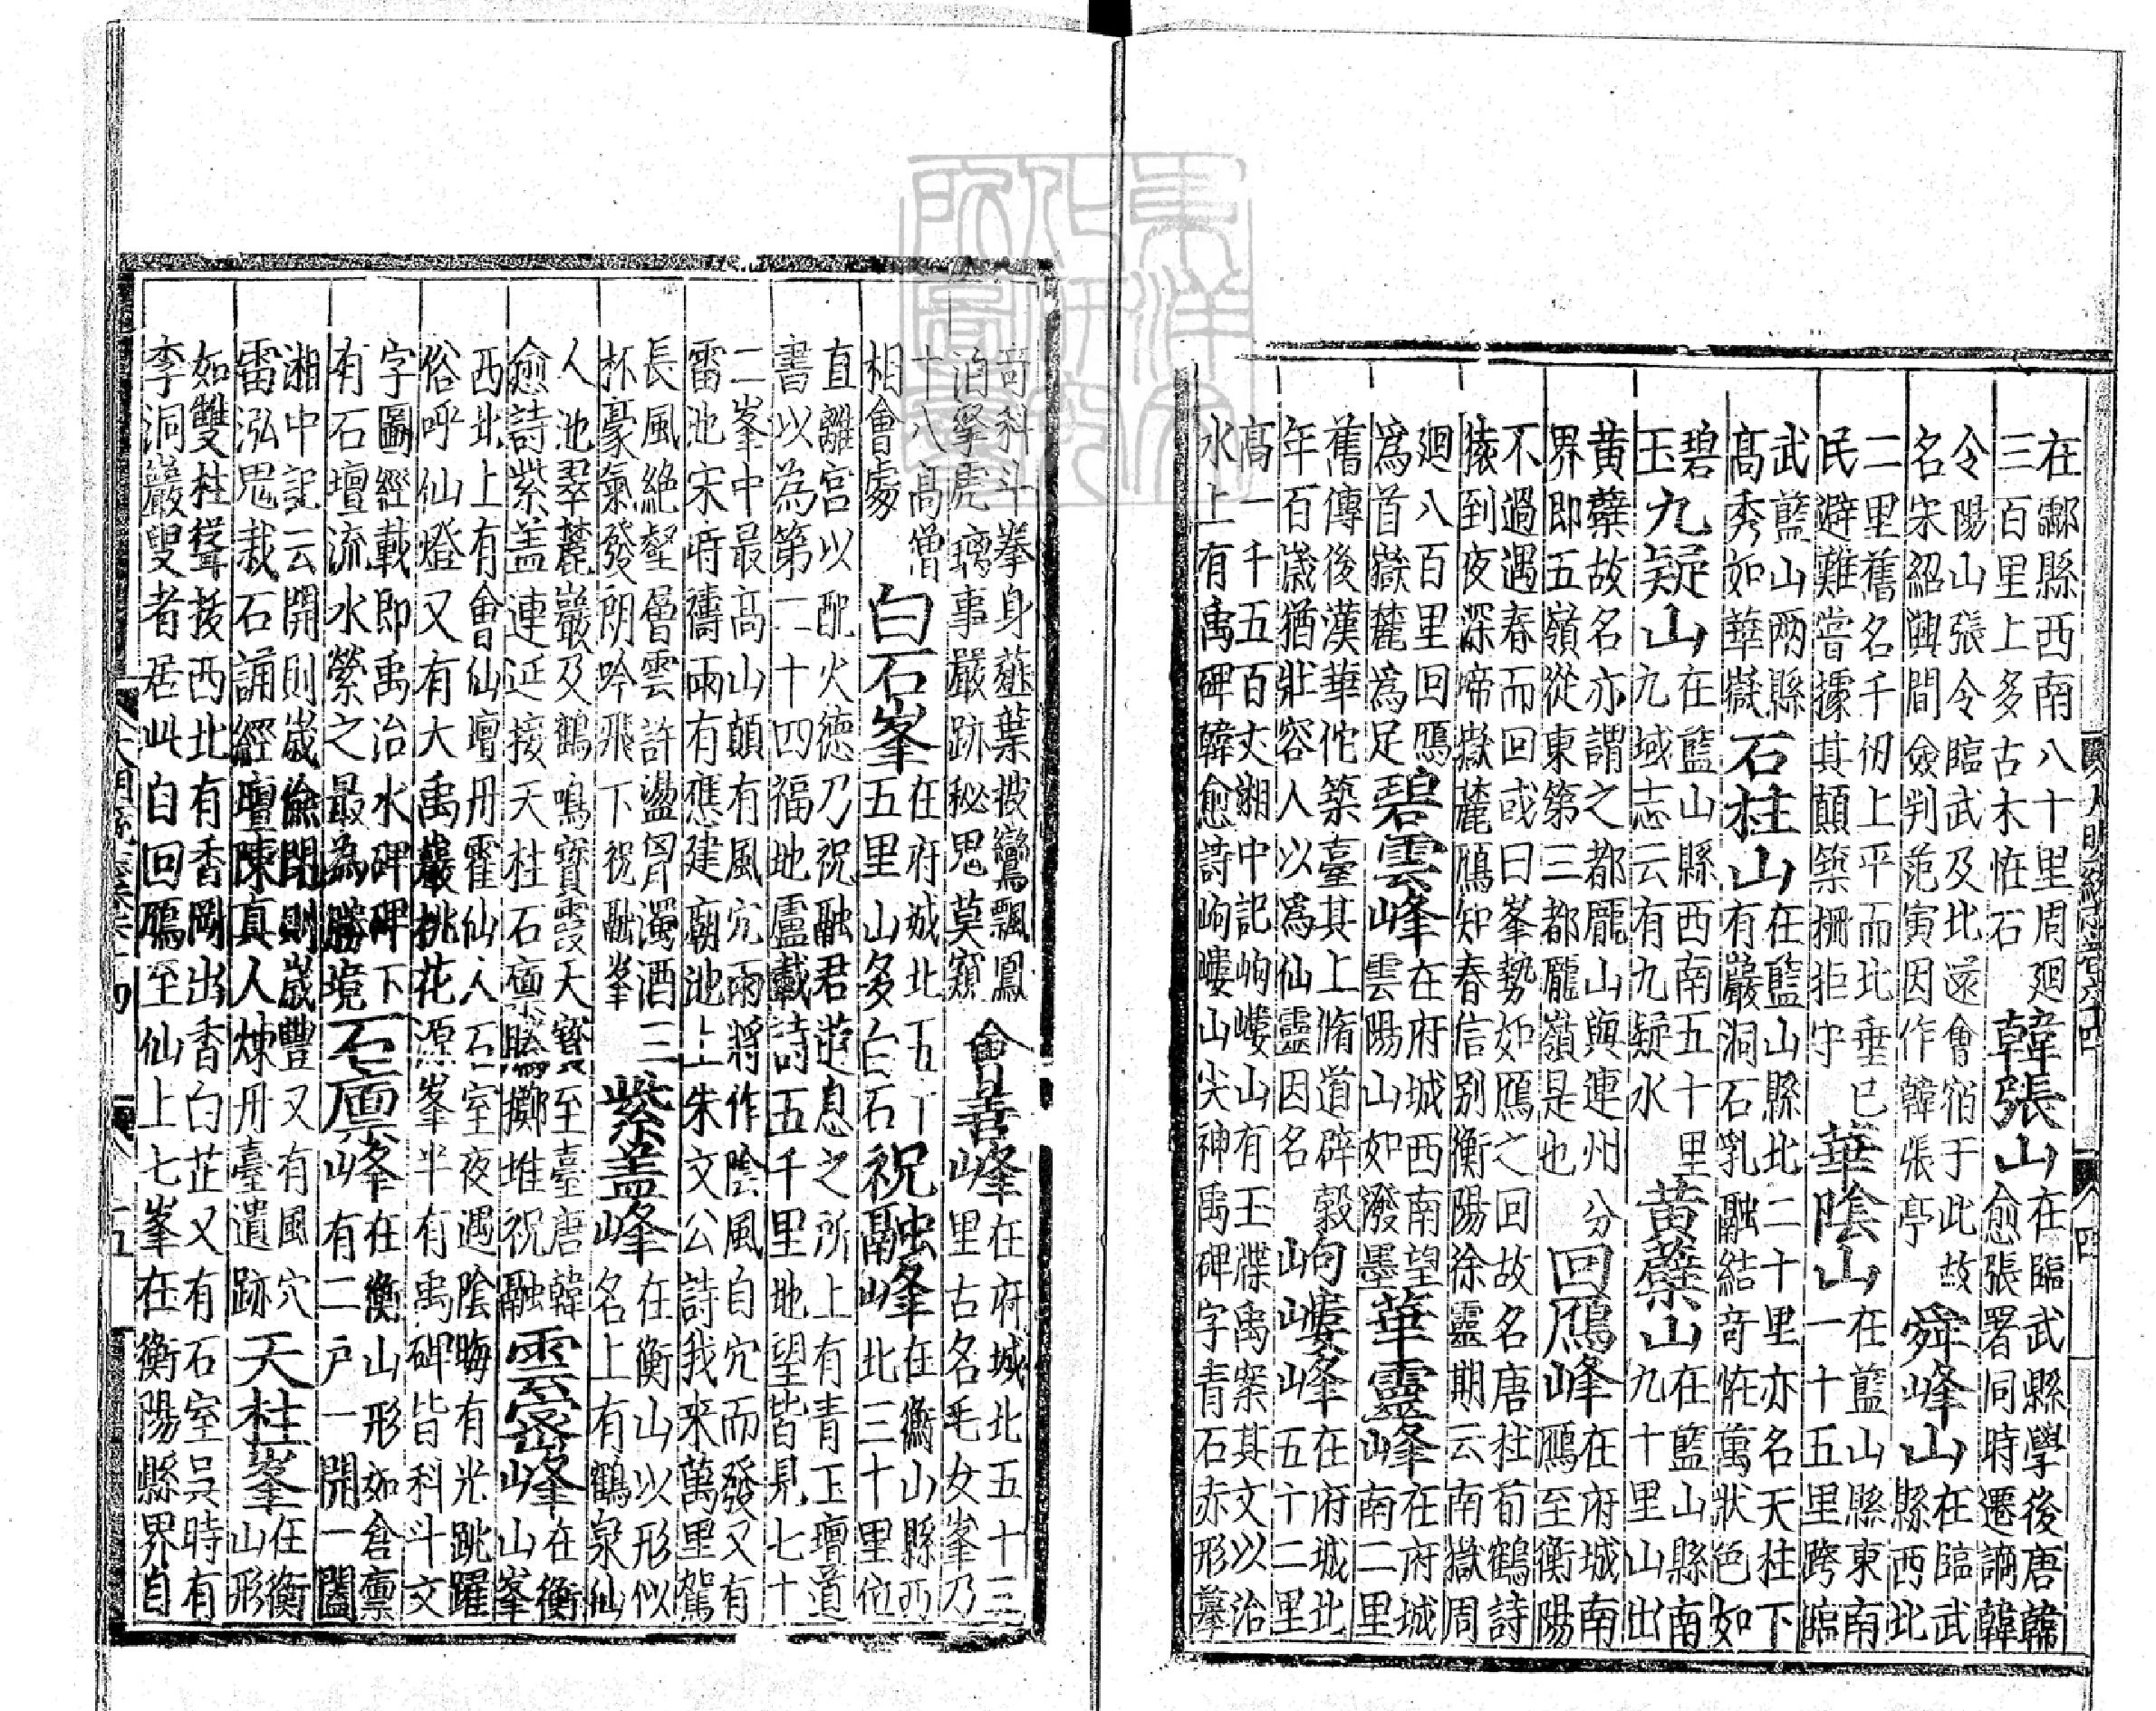 在酃縣西南八十里周廻
三百里上多古木恠石
韓張山
在臨武縣學後唐韓
愈張署同時遷謫韓
令陽山張令臨武及北還會宿于此故
名宋紹興間僉判范寅因作韓張亭
舜峰山
在臨武
縣西北
二里舊名千仞上平而北垂巳
民避難嘗據其顛築柵拒守
華陰山
在藍山縣東南
一十五里跨臨
武藍山兩縣
高秀如華嶽
石柱山
在藍山縣北二十里亦名天柱下
有巖洞石乳融結竒恠萬狀色如
碧
玉
九疑山
在藍山縣西南五十里
九域志云有九疑水
黄蘗山
在藍山縣南
九十里山出
黄蘗故名亦謂之都龎山與連州分
界即五嶺從東第三都龎嶺是也
回鴈峰
在府城南
鴈至衡陽
不過遇春而回或曰峯勢如鴈之回故名唐杜荀鶴詩
猿到夜深啼嶽麓鴈知春信别衡陽徐靈期云南嶽周
廻八百里回鴈
爲首嶽麓爲足
碧雲峰
在府城西南望
雲陽山如潑墨
華靈峰
在府城
南二里
舊傳後漢華佗築臺其上脩道辟穀
年百歲猶壯容人以爲仙靈因名
岣嶁峰
在府城北
五十二里
高一千五百丈湘中記岣嶁山有玉牒禹案其文以治
水上有禹碑韓愈詩岣嶁山尖神禹碑字青石赤形摹
竒科斗拳身薤葉披鸞飄鳳
泊拏虎螭事嚴跡秘鬼莫窺
會善峰
在府城北五十三
里古名毛女峯乃
十八高僧
相會處
白石峯
在府城北五十
五里山多白石
祝融峰
在衡山縣西
北三十里位
直離宫以配火德乃祝融君遊息之所上有青玉壇道
書以為第二十四福地盧載詩五千里地望皆見七十
二峯中最高山顛有風穴雨將作隂風自穴而發又有
雷池宋時禱雨有應建廟池上朱文公詩我來萬里駕
長風絶壑層雲許盪胷濁酒三
杯豪氣發朗吟飛下祝融峯
紫蓋峰
在衡山以形似
名上有鶴泉仙
人池翠麓巖及鶴鳴寶霞天寶至臺唐韓
愈詩紫盖連延接天柱石廪騰擲堆祝融
雲密峰
在衡
山峯
西北上有會仙壇丹霍仙人石室夜遇隂晦有光跳躍
俗呼仙燈又有大禹巖桃花源峯半有禹碑皆科斗文
字圖經載即禹治水碑碑下
有石壇流水縈之最為勝境
石廪峰
在衡山形如倉廪
有二戶一開一闔
湘中記云開則歲儉閉則歲豐又有風穴
雷泓鬼裁石誦經壇陳真人煉丹臺遺跡
天柱峯
在衡
山形
如雙柱聳拔西北有香岡出香白芷又有石室吳時有
李洞巖叟者居此自回鴈至仙上七峯在衡陽縣界自